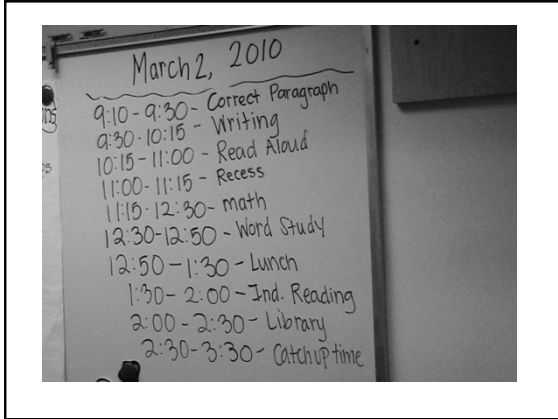 March 2, 2010
9:10 - 9:30 - Correct Paragraph
9:30 - 10:15 - Writing
10:15 - 11:00 - Read Aloud
11:00 - 11:15 - Recess
11:15 - 12:30 - math
12:30 - 12:50 - Word Study
12:50 - 1:30 - Lunch
1:30 - 2:00 - Ind. Reading
2:00 - 2:30 - Library
2:30 - 3:30 - Catch up time